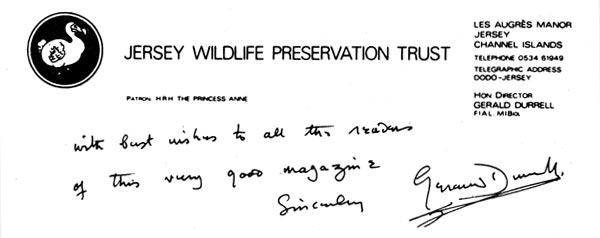 JERSEY WILDLIFE PRESERVATION TRUST
PATRON HRH THE PRINCESS ANNE
LES AUGRÈS MANOR
JERSEY
CHANNEL ISLANDS
TELEPHONE 0534 61949
TELEGRAPHIC ADDRESS
DODO-JERSEY
HON DIRECTOR
GERALD DURRELL
FIAL. MIBiol
with best wishes to all the readers
of this very good magazine
Sincerely
Gerald Durrell.